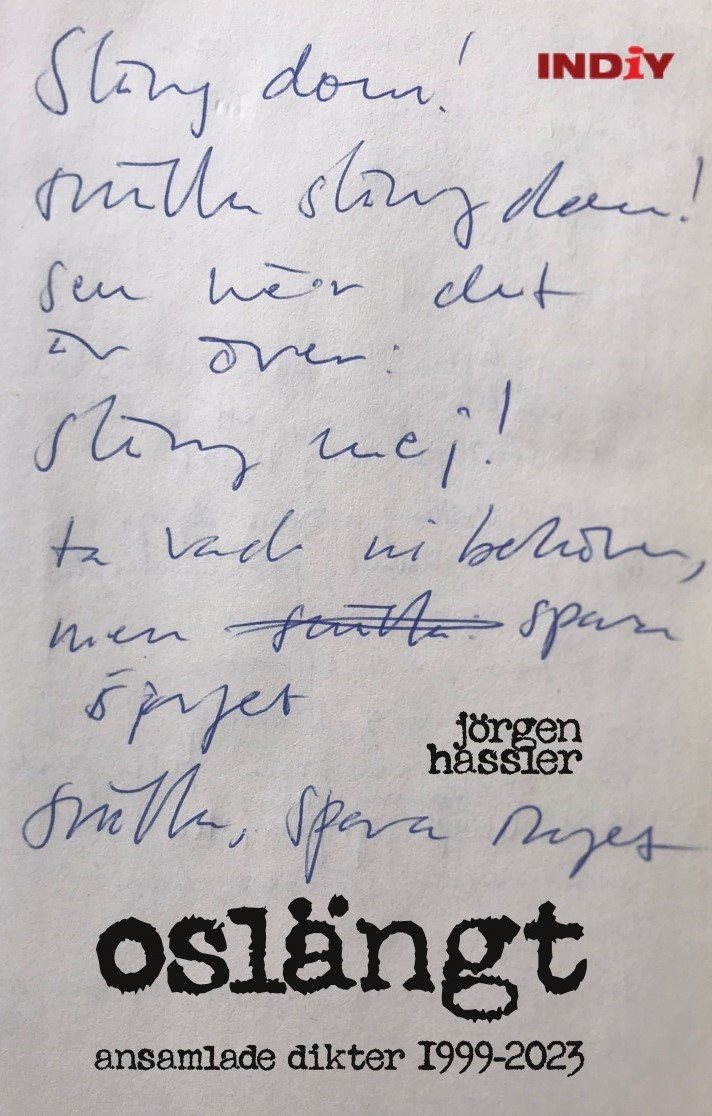 INDiY
Släng dom!
snälla släng dom!
sen när det
är över:
släng mej!
ta vad ni behöver,
men snälla spara
inget
jörgen
hassler
snälla, spara inget
oslängt
ansamlade dikter 1999-2023